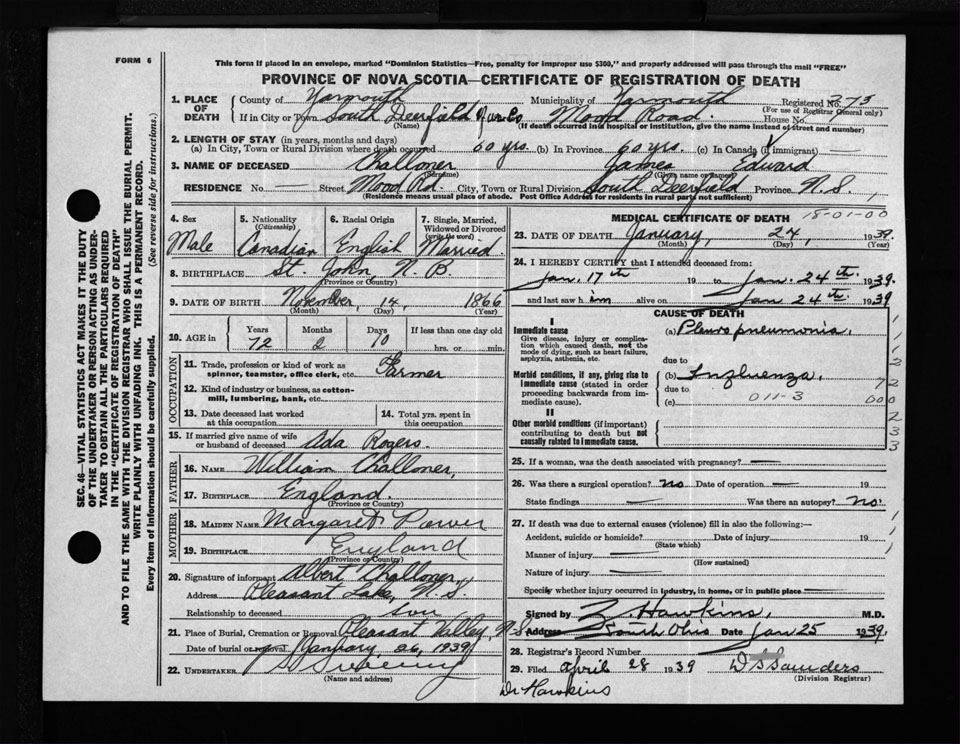 FORM 6
This form if placed in an envelope, marked "Dominion Statistics—Free, penalty for improper use $300," and properly addressed will pass through the mail "FREE"
PROVINCE OF NOVA SCOTIA—CERTIFICATE OF REGISTRATION OF DEATH
1. PLACE OF DEATH County of Yarmouth Municipality of Yarmouth Registered No. 275
(For use of Registrar General only)
If in City or Town South Deerfield Yar. Co Mood Road. House No.
(Name) (If death occurred in a hospital or institution, give the name instead of street and number)
2. LENGTH OF STAY (in years, months and days)
(a) In City, Town or Rural Division where death occurred 60 yrs. (b) In Province 60 yrs. (c) In Canada (if immigrant) —
3. NAME OF DECEASED Challoner James Edward
(Surname) (Given name)
RESIDENCE No. — Street Mood Rd. City, Town or Rural Division South Deerfield Province N.S.
(Residence means usual place of abode. Post Office Address for residents in rural parts not sufficient)
4. Sex Male
5. Nationality (Citizenship) Canadian
6. Racial Origin English
7. Single, Married, Widowed or Divorced (write the word) Married.
8. BIRTHPLACE St. John N. B.
(Province or Country)
9. DATE OF BIRTH November, 14, 1866
(Month) (Day) (Year)
10. AGE in Years 72 Months 2 Days 10 If less than one day old hrs. or min.
OCCUPATION
11. Trade, profession or kind of work as spinner, teamster, office clerk, etc. Farmer
12. Kind of industry or business, as cotton-mill, lumbering, bank, etc.
13. Date deceased last worked at this occupation
14. Total yrs. spent in this occupation
15. If married give name of wife or husband of deceased Ada Rogers.
FATHER
16. NAME William Challoner,
17. BIRTHPLACE England.
(Province or Country)
MOTHER
18. MAIDEN NAME Margaret Power
19. BIRTHPLACE England
(Province or Country)
20. Signature of informant Albert Challoner,
Address Pleasant Lake, N.S.
Relationship to deceased son
21. Place of Burial, Cremation or Removal Pleasant Valley, N.S.
Date of burial or removal January 26, 1939
22. UNDERTAKER Sweeny
(Name and address)
MEDICAL CERTIFICATE OF DEATH 18-01-00
23. DATE OF DEATH January, 24, 1939.
(Month) (Day) (Year)
24. I HEREBY CERTIFY that I attended deceased from:
Jan. 17th 19 to Jan. 24th. 1939.
and last saw him alive on Jan 24th. 1939
CAUSE OF DEATH
I
Immediate cause
Give disease, injury or complication which caused death, not the mode of dying, such as heart failure, asphyxia, asthenia, etc.
(a) Pleuro pneumonia.
due to
Morbid conditions, if any, giving rise to immediate cause (stated in order proceeding backwards from immediate cause).
(b) Influenza.
due to
(c) 011-3
II
Other morbid conditions (if important) contributing to death but not causally related to immediate cause.
25. If a woman, was the death associated with pregnancy? —
26. Was there a surgical operation? no Date of operation — 19
State findings — Was there an autopsy? no.
27. If death was due to external causes (violence) fill in also the following:—
Accident, suicide or homicide? Date of injury 19
(State which)
Manner of injury —
(How sustained)
Nature of injury —
Specify whether injury occurred in industry, in home, or in public place —
Signed by Z. Hawkins, M.D.
Address South Ohio Date Jan 25 1939.
28. Registrar's Record Number
29. Filed April 28 1939 D S Saunders
(Division Registrar)
Dr Hawkins
SEC. 46—VITAL STATISTICS ACT MAKES IT THE DUTY
OF THE UNDERTAKER OR PERSON ACTING AS UNDERTAKER
TO OBTAIN ALL THE PARTICULARS REQUIRED
IN THE "CERTIFICATE OF REGISTRATION OF DEATH"
AND TO FILE THE SAME WITH THE DIVISION REGISTRAR WHO SHALL ISSUE THE BURIAL PERMIT.
WRITE PLAINLY WITH UNFADING INK. THIS IS A PERMANENT RECORD.
Every item of information should be carefully supplied. (See reverse side for instructions.)